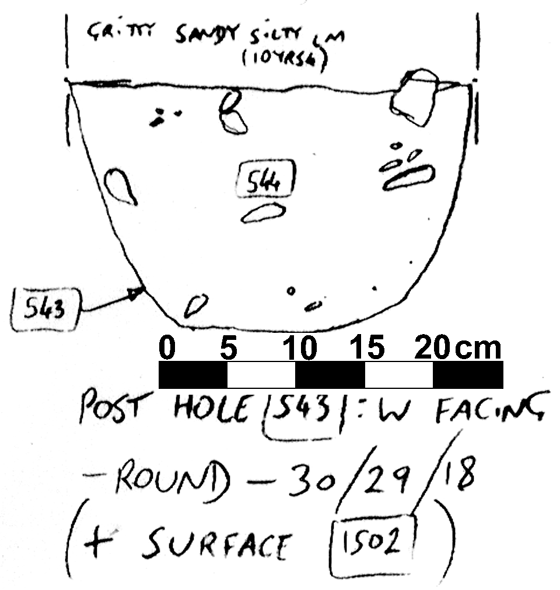 GRITTY SANDY SILTY LM
(10YR54)
544
543
0 5 10 15 20cm
POST HOLE 543 : W FACING
- ROUND - 30/29/18
(+ SURFACE 1502)